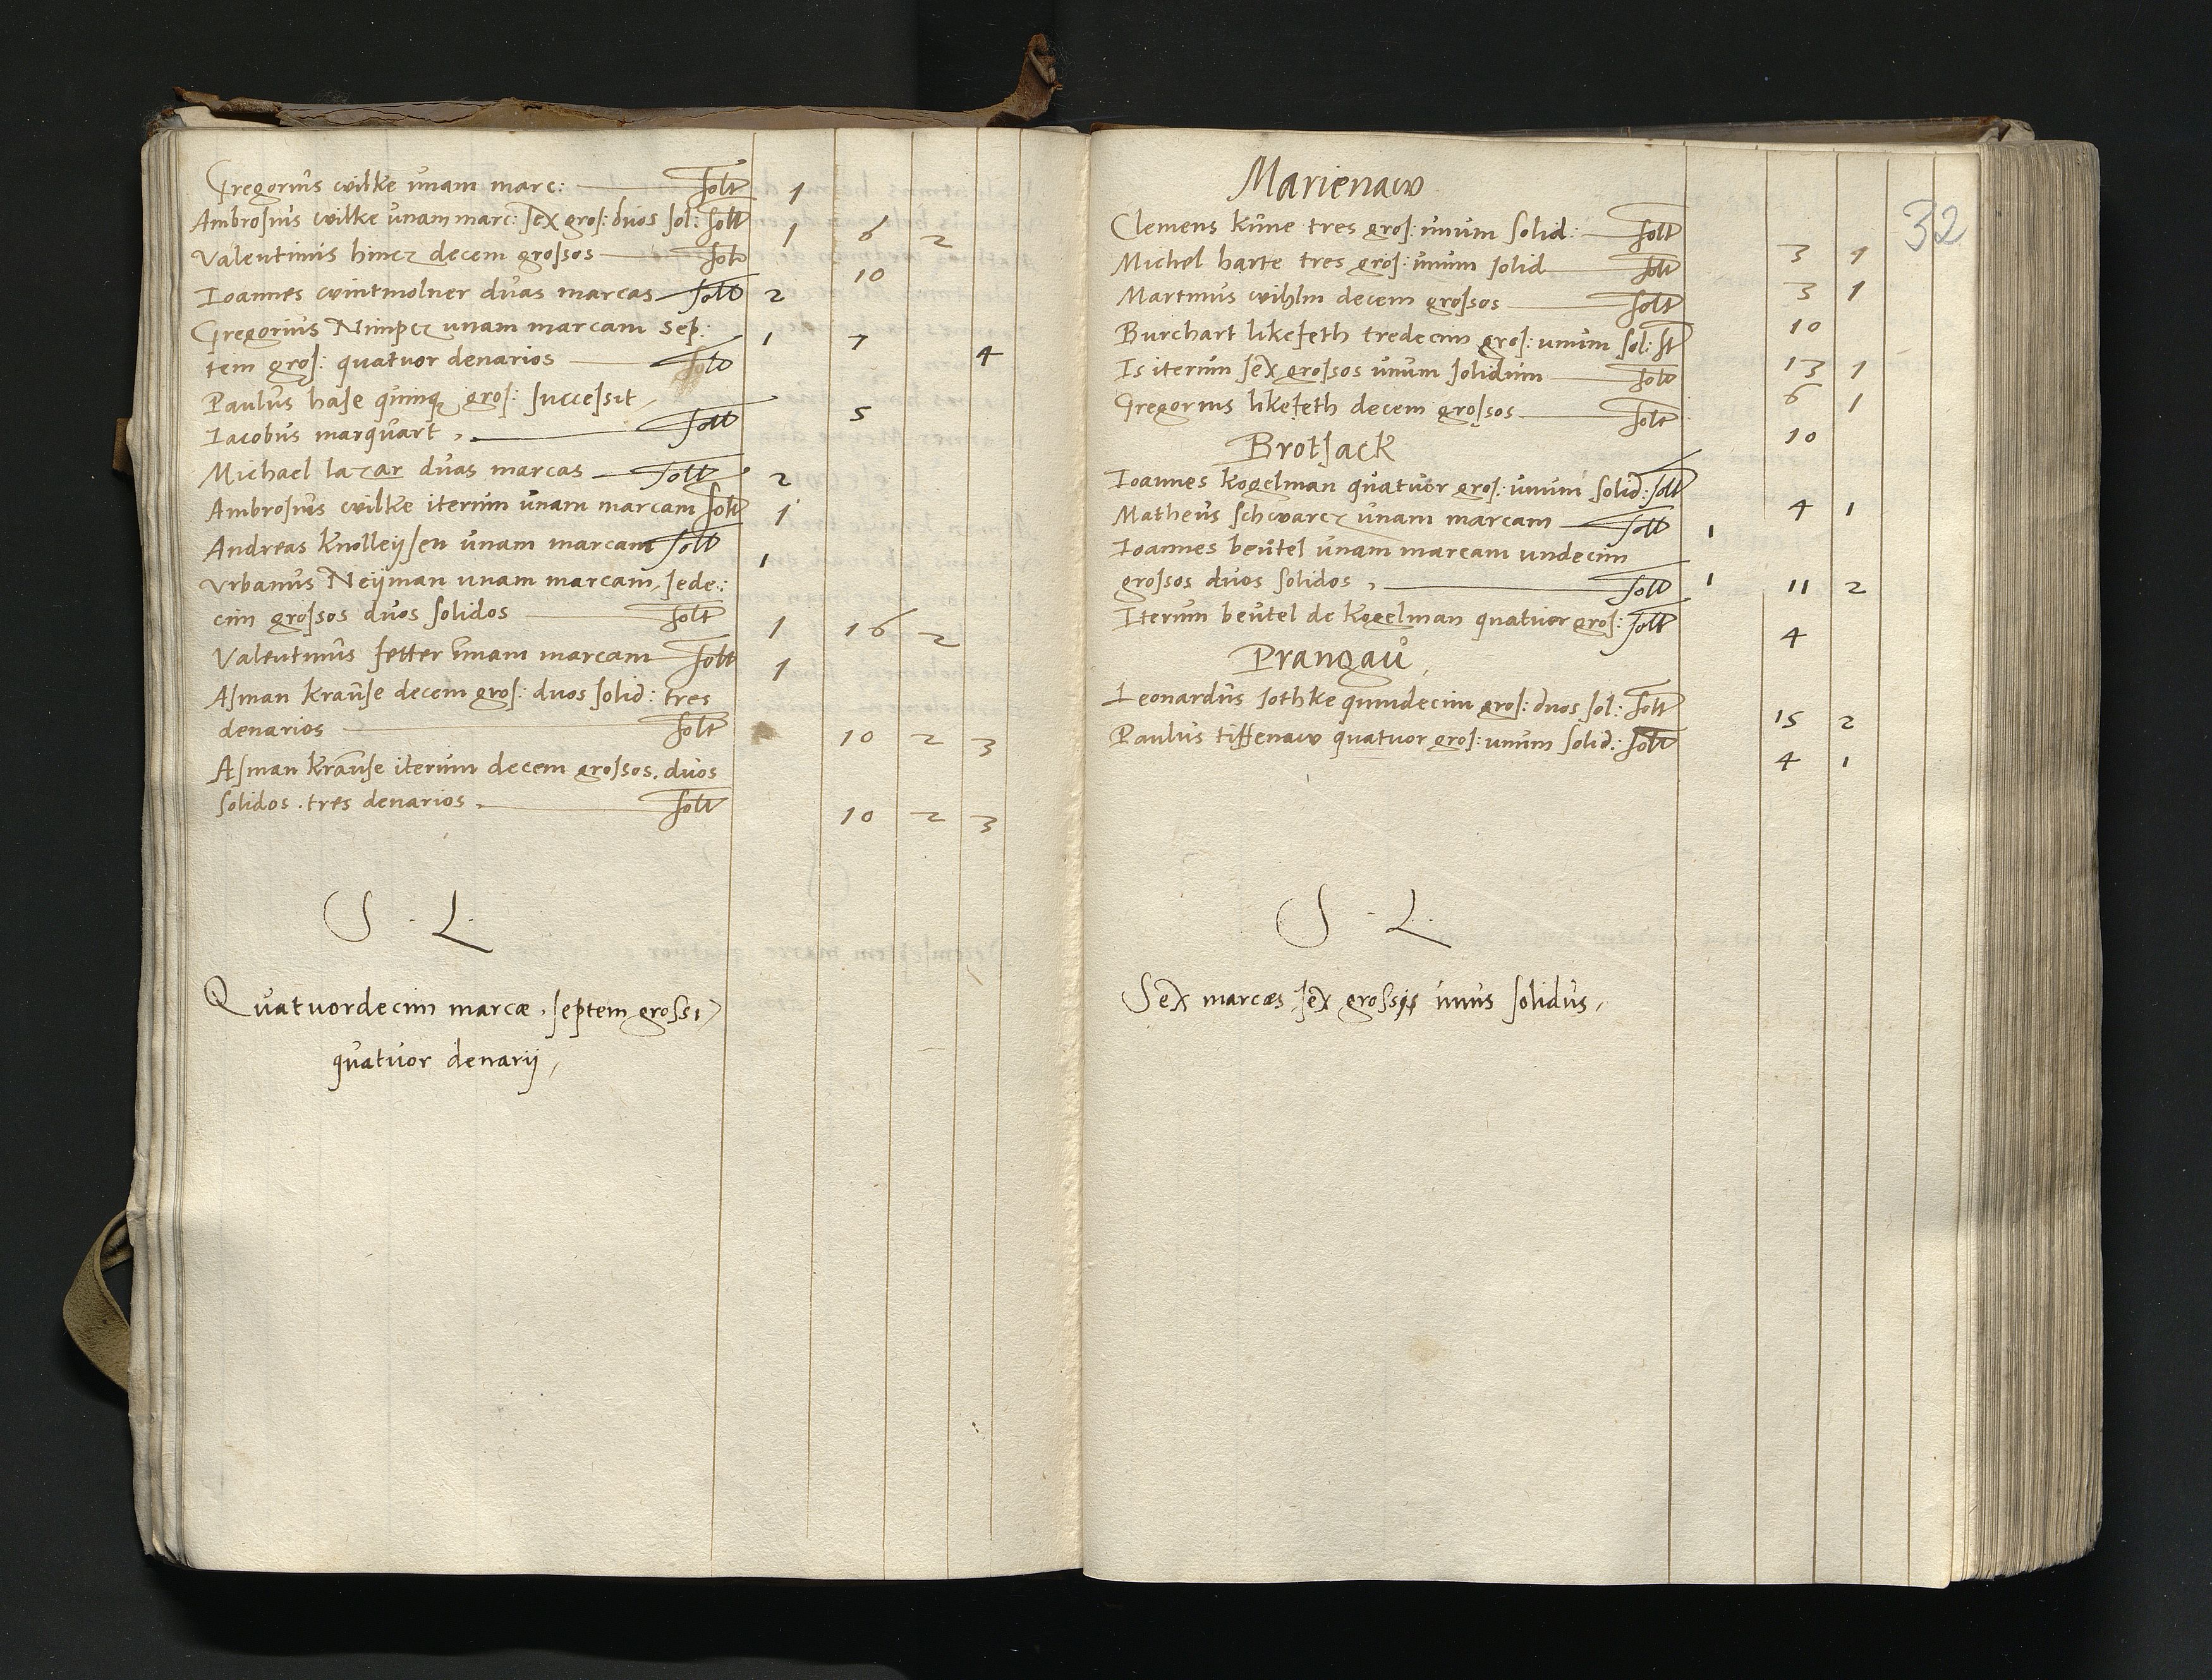 Gregorius wilke unam marc: solt 1
Ambrosius wilke unam marc: sex gros: duos sol: solt 1 6 2
Valentinus hincz decem grossos solt 10
Ioannes wintmolner duas marcas solt 2
Gregorius Nimpcz unam marcam sep: 1 7 4
tem gros: quatuor denarios solt
Paulus hase quinq gros: successit 5
Iacobus marquart, solt
Michael lazar duas marcas solt 2
Ambrosius wilke iterum unam marcam solt 1
Andreas Knolleijsen unam marcam solt 1
Vrbanus Neijman unam marcam sede:
cim grossos duos solidos solt 1 16 2
Valentinus fetter unam marcam solt 1
Asman krause decem gros: duos solid: tres
denarios solt 10 2 3
Asman krause iterum decem grossos. duos
solidos. tres denarios. solt 10 2 3
S. L.
Quatuordecim marcæ. septem grossi
quatuor denarij,
32
Marienaw
Clemens kune tres gros: unum solid: solt 3 1
Michel harte tres gros: unum solid solt 3 1
Martinus wihlm decem grossos solt 10
Burchart likefeth tredecim gros: unum sol: st 13 1
Is iterum sex grossos unum solidum solt 6 1
Gregorius likefeth decem grossos solt 10
Brotsack
Ioannes Kogelman quatuor gros: unum solid: solt 4 1
Matheus schwarcz unam marcam solt 1
Ioannes beutel unam marcam undecim
grossos duos solidos, solt 1 11 2
Iterum beutel de Kogelman quatuor gros: solt 4
Prangau
Leonardus sothke quindecim gros: duos sol: solt 15 2
Paulus tiffenaw quatuor gros: unum solid: solt 4 1
S. L.
Sex marcæs sex grossis unus solidus,